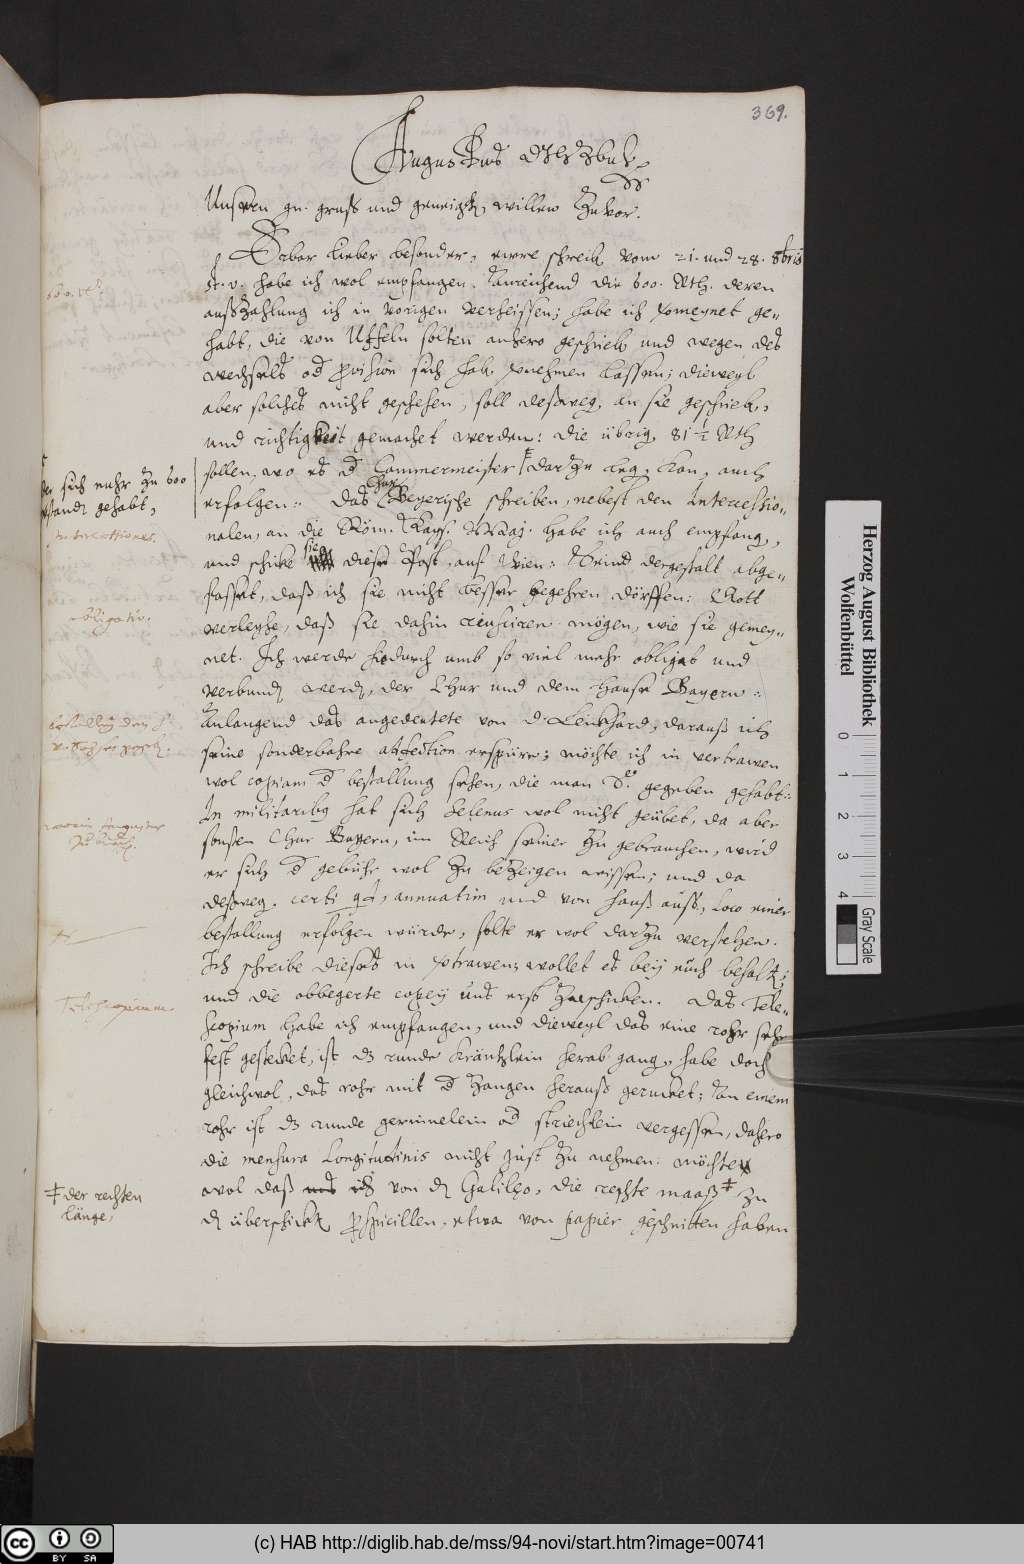 369.
Augustus
Unsern gn. gruß und geneigt. willen Zuvor.
Erbar lieber besonder, ewre schreib. vom 21. und 28. 8bris
st. v. habe ich wol empfangen. Anreichend die 600. Rth. deren
außZahlung ich in vorigen verheissen; habe ich vermeynet ge-
habt, die von Uffeln solten anhero geschrieb. und wegen des
wechsels od provision sich hab. vernehmen lassen; dieweyl
aber solches nicht geschehen, soll deßweg. an sie geschrieb.,
und richtigkeit gemachet werden: die übrig. 81 1/2 Rth
sollen, wo es d Cammermeister darzu leg. kan, auch
der sich mehr Zu 600
verstand. gehabt,
erfolgen: Das Chur Beyerische schreiben, nebest den Intercessio-
nalen, an die Röm. Kays. Maaj. habe ich auch empfang.,
Intercessiones.
und schicke sie diese Post auf Wien: Seind dergestalt abge-
fasset, daß ich sie nicht besser begehren dörffen: Gott
verleyhe, daß sie dahin reusciren mögen, wie sie gemey-
obligatio.
net. Ich werde hiedurch umb so viel mehr obligat und
verbund. werd., der Chur und dem Hause Bayern:
Anlangend das angedeutete von d. Leuchsard, darauß ich
seine sonderbahre affection erspüre; möchte ich in vertrawen
wol copiam d bestallung sehen, die man Deo gegeben gehabt:
In militaribus hat sich Selenus wol nicht geübet, da aber
sonsten Chur Bayern, im Reich seiner Zu gebrauchen, wird
er sich d gebühr wol Zu beZeigen wissen; und da
deßweg. certi qd, annuatim und von Hauß auß, loco einer
bestallung erfolgen würde, solte er wol darZu verstehen.
Ich schreibe dieses in vertrawen; wollet es bey euch behalt.;
und die obbegerte copey uns erst Zuschicken. Das Tele-
Telescopium
scopium habe ich empfangen, und dieweyl das eine rohr sehr
fest gestecket, ist dz runde kräntzlein herab gang., habe doch
gleichwol, das rohr mit d Zangen herauß gerucket; An einem
rohr ist dz runde gerinnelein od striechlein vergessen, dahero
die mensura longitudinis nicht just Zu nehmen: möchte
wol daß von d. Galileo, die rechte maaß ‡ Zu
‡ der rechten
länge,
d. überschickt. perspicillen, etwa von papier geschnitten haben
Herzog August Bibliothek
Wolfenbüttel
0 1 2 3 4
Gray Scale
(c) HAB http://diglib.hab.de/mss/94-novi/start.htm?image=00741
cc BY SA